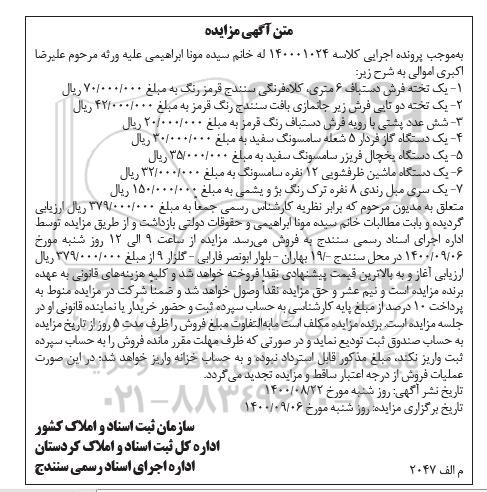 متن آگهی مزایده
به‌موجب پرونده اجرایی کلاسه ۱۴۰۰۰۱۰۲۴ له خانم سیده مونا ابراهیمی علیه ورثه مرحوم علیرضا
اکبری اموالی به شرح زیر:
۱- یک تخته فرش دستباف ۶ متری، کلاه‌فرنگی سنندج قرمز رنگ به مبلغ ۷۰/۰۰۰/۰۰۰ ریال
۲- یک تخته دو تایی فرش زیر جانمازی بافت سنندج رنگ قرمز به مبلغ ۴۲/۰۰۰/۰۰۰ ریال
۳- شش عدد پشتی با رویه فرش دستباف رنگ قرمز به مبلغ ۲۰/۰۰۰/۰۰۰ ریال
۴- یک دستگاه گاز فردار ۵ شعله سامسونگ سفید به مبلغ ۳۰/۰۰۰/۰۰۰ ریال
۵- یک دستگاه یخچال فریزر سامسونگ سفید به مبلغ ۳۵/۰۰۰/۰۰۰ ریال
۶- یک دستگاه ماشین ظرفشویی ۱۲ نفره سامسونگ به مبلغ ۳۲/۰۰۰/۰۰۰ ریال
۷- یک سری مبل رندی ۸ نفره ترک رنگ بژ و یشمی به مبلغ ۱۵۰/۰۰۰/۰۰۰ ریال
متعلق به مدیون مرحوم که برابر نظریه کارشناس رسمی جمعاً به مبلغ ۳۷۹/۰۰۰/۰۰۰ ریال ارزیابی
گردیده و بابت مطالبات خانم سیده مونا ابراهیمی و حقوقات دولتی بازداشت و از طریق مزایده توسط
اداره اجرای اسناد رسمی سنندج به فروش می‌رسد. مزایده از ساعت ۹ الی ۱۲ روز شنبه مورخ
۱۴۰۰/۰۹/۰۶ در محل سنندج -۱۹/ بهاران - بلوار ابونصر فارابی - گلزار ۹ از مبلغ ۳۷۹/۰۰۰/۰۰۰ ریال
ارزیابی آغاز و به بالاترین قیمت پیشنهادی نقداً فروخته خواهد شد و کلیه هزینه‌های قانونی به عهده
برنده مزایده است و نیم عشر و حق مزایده نقداً وصول خواهد شد و ضمناً شرکت در مزایده منوط به
پرداخت ۱۰ درصد از مبلغ پایه کارشناسی به حساب سپرده ثبت و حضور خریدار یا نماینده قانونی او در
جلسه مزایده است. برنده مزایده مکلف است مابه‌التفاوت مبلغ فروش را ظرف مدت ۵ روز از تاریخ مزایده
به حساب صندوق ثبت تودیع نماید و در صورتی که ظرف مهلت مقرر مانده فروش را به حساب سپرده
ثبت واریز نکند، مبلغ مذکور قابل استرداد نبوده و به حساب خزانه واریز خواهد شد: در این صورت
عملیات فروش از درجه اعتبار ساقط و مزایده تجدید می‌گردد.
تاریخ نشر آگهی: روز شنبه مورخ ۱۴۰۰/۰۸/۲۲
تاریخ برگزاری مزایده: روز شنبه مورخ ۱۴۰۰/۰۹/۰۶
سازمان ثبت اسناد و املاک کشور
اداره کل ثبت اسناد و املاک کردستان
اداره اجرای اسناد رسمی سنندج
م الف ۲۰۴۷